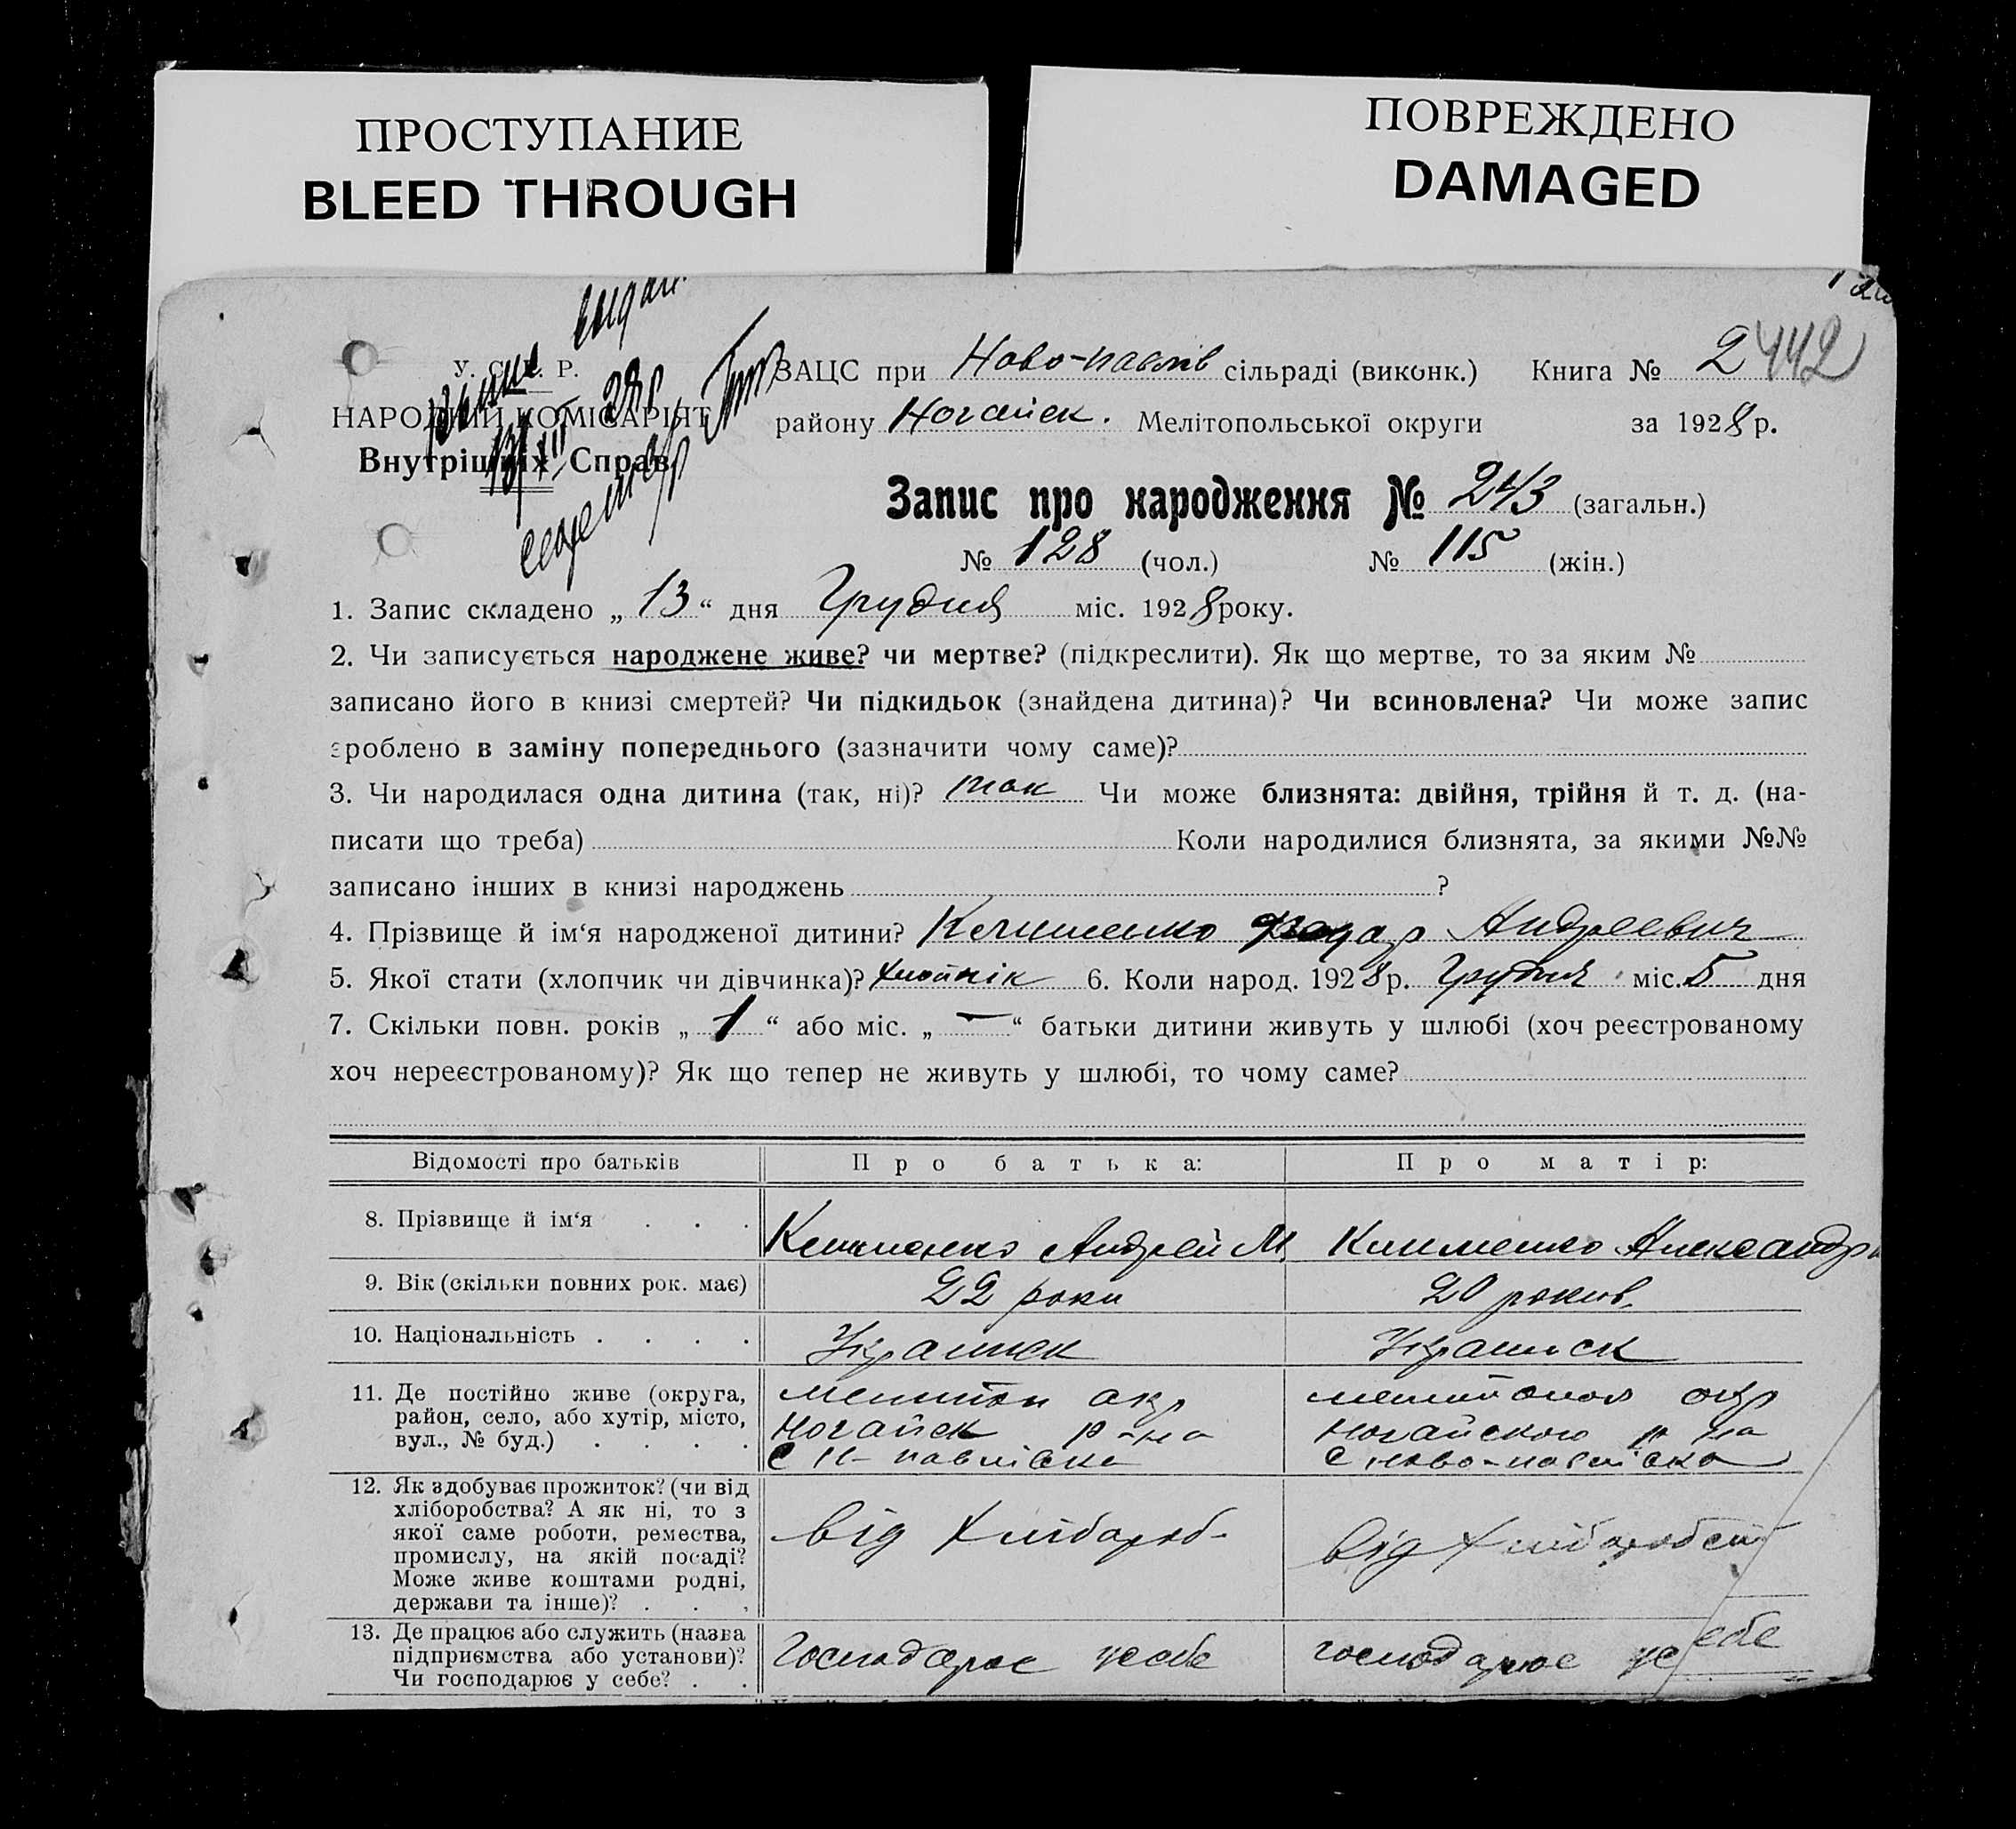 ПРОСТУПАНИЕ
BLEED THROUGH
ПОВРЕЖДЕНО
DAMAGED
У. С. Р. Р.
НАРОДНИЙ КОМІСАРІЯТ
Внутрішніх Справ
ЗАЦС при Ново-павлів сільраді (виконк.) Книга № 2 442
району Ногайск. Мелітопольської округи за 1928 р.
Запис про народження № 243 (загальн.)
№ 128 (чол.) № 115 (жін.)
1. Запис складено „13“ дня Грудня міс. 1928 року.
2. Чи записується народжене живе? чи мертве? (підкреслити). Як що мертве, то за яким №
записано його в книзі смертей? Чи підкидьок (знайдена дитина)? Чи всиновлена? Чи може запис
зроблено в заміну попереднього (зазначити чому саме)?
3. Чи народилася одна дитина (так, ні)? так Чи може близнята: двійня, трійня й т. д. (на-
писати що треба) Коли народилися близнята, за якими №№
записано інших в книзі народжень ?
4. Прізвище й ім‘я народженої дитини? Клименко Андреевич
5. Якої статі (хлопчик чи дівчинка)? 6. Коли народ. 1928 р. Грудня міс. 5 дня
7. Скільки повн. років „1“ або міс. „—“ батьки дитини живуть у шлюбі (хоч реєстрованому
хоч нереєстрованому)? Як що тепер не живуть у шлюбі, то чому саме?
Відомості про батьків Про батька: Про матір:
8. Прізвище й ім‘я . . . Клименко Андрей М. Клименко Александра
9. Вік (скільки повних рок. має) 22 роки 20 рокив.
10. Національність . . . . Украинск Украинск
11. Де постійно живе (округа,
район, село, або хутір, місто,
вул., № буд.) . . . .
Мелитоп окр
Ногайск р-на
С Н-павлівка
Мелитопол окр
Ногайского р-на
С Ново-павлівка
12. Як здобуває прожиток? (чи від
хліборобства? А як ні, то з
якої саме роботи, ремества,
промислу, на якій посаді?
Може живе коштами родні,
держави та інше)? . . .
від Хлібароб-
від Хлібаробст
13. Де працює або служить (назва
підприємства або установи)?
Чи господарює у себе? . .
Господарює усебе
господарює усебе